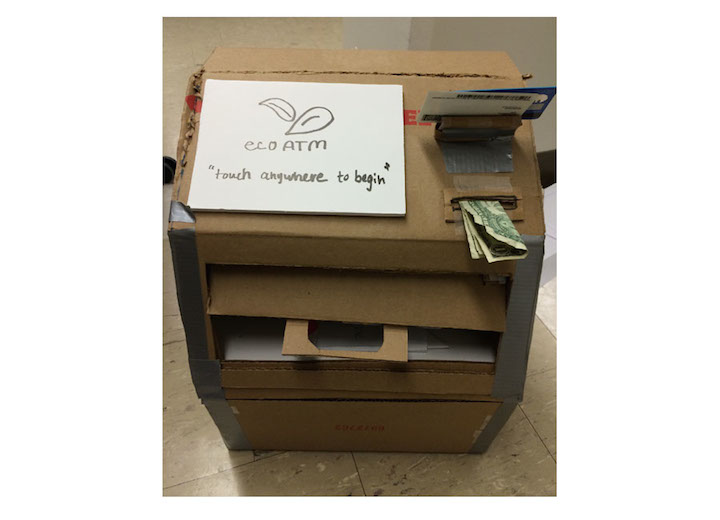 eco ATM
"touch anywhere to begin"